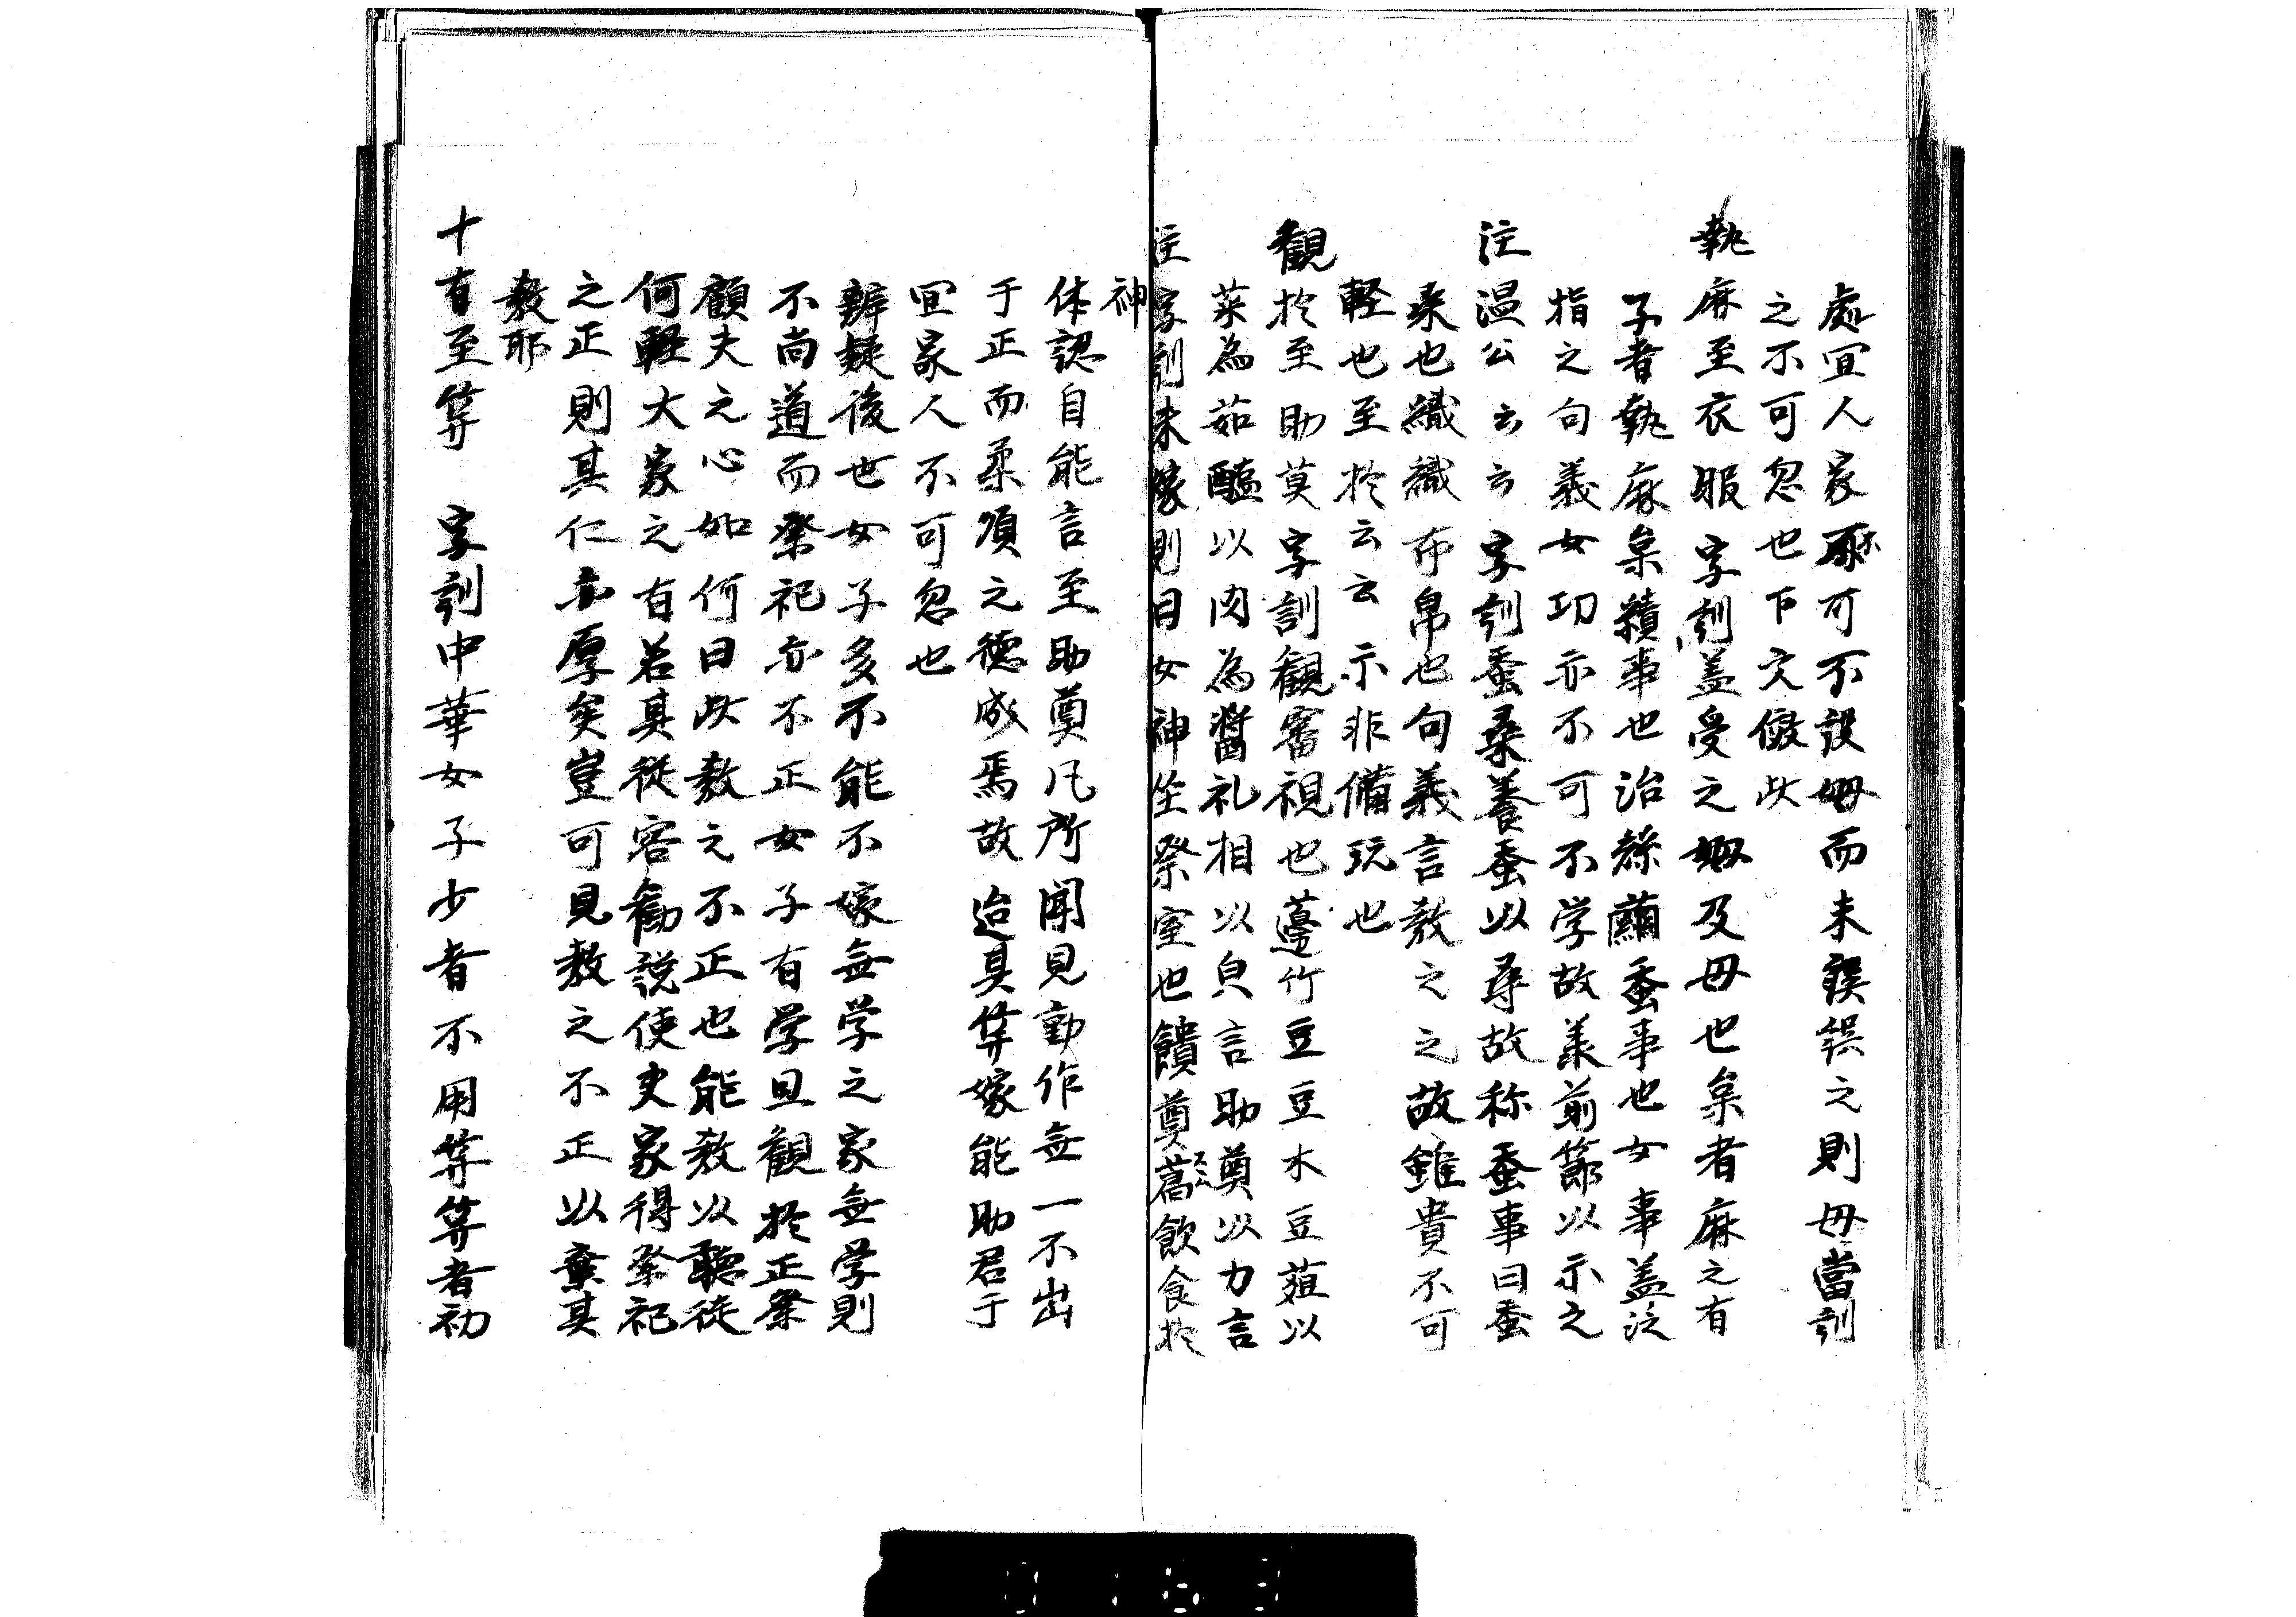 處宜人家豚不可不設姆而未誤誤之則毋當訓
之不可忽也下文倣此
執麻至衣服　字訓盖受之姆及毋也枲者麻之有
子者執麻枲績事也治絲繭蚕事也女事盖泛
指之句義女功亦不可不学故羕前節以示之
注温公云云　字訓蚕桑養蚕以尋故称蚕事曰蚕
桑也織織布帛也句義言教之之故雖貴不可
軽也至於云云示非備玩也
觀於至助奠　字訓觀審視也籩竹豆豆木豆菹以
菜為茹醢以肉為醤礼相以皃言助奠以力言
注　字訓未嫁則曰女神坐祭室也饋奠云云薦飲食於
神
体認自能言至助奠凡所聞見動作無一不出
于正而柔順之德成焉故迨其笄嫁能助君于
宜家人不可忽也
辨疑後世女子多不能不嫁無学之家無学則
不尚道而祭祀亦不正女子有学且觀於正祭
顧夫之心如何曰此教之不正也能教以聽從
何軽大家之有若其從容勸説使夫家得祭祀
之正則其仁亦厚矣豈可見教之不正以棄其
教耶
十有至笄　字訓中華女子少者不用笄笄者初